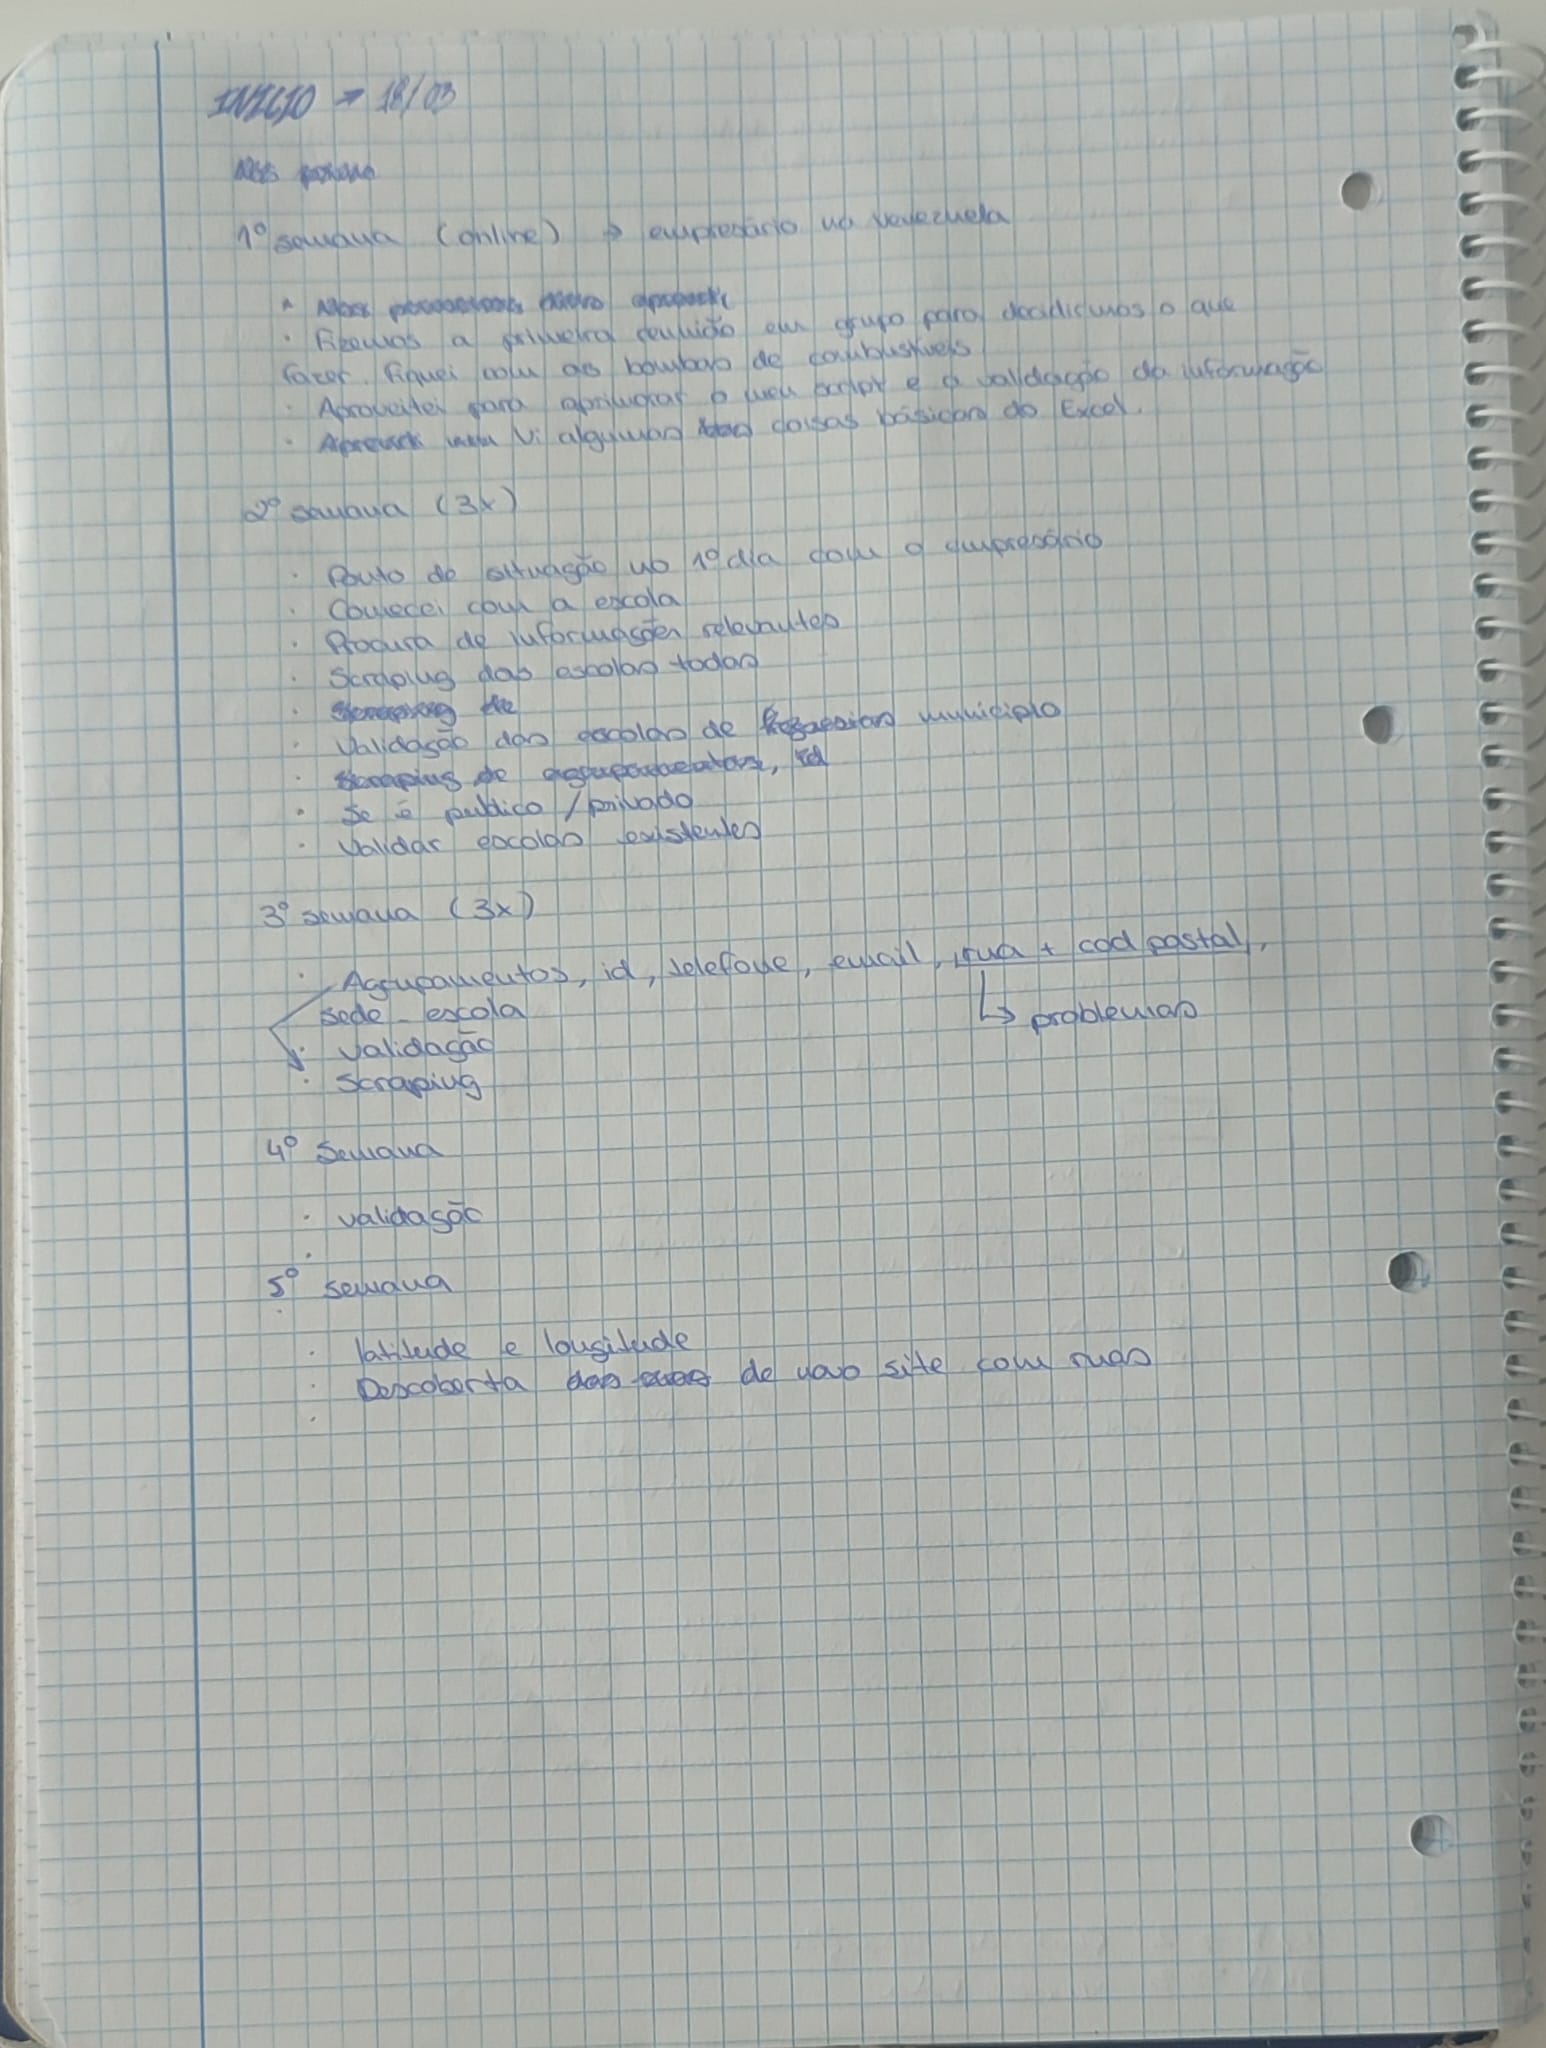 INICIO → 18/03
1º semana (online) → empresário na Venezuela
· Fizemos a primeira reunião em grupo para decidirmos o que
fazer. Fiquei com as bombas de combustíveis
· Aproveitei para aprimorar o meu script e a validação da informação
· Vi algumas coisas básicas do Excel.
2º semana (3x)
· Ponto de situação no 1º dia com o empresário
· Comecei com a escola
· Procura de informações relevantes
· Scraping das escolas todas
· Scraping de
· Validação das escolas de município
· Scraping de agrupamentos, id
· Se é publico / privado
· Validar escolas existentes
3º semana (3x)
· Agrupamentos, id, telefone, email, rua + cod postal,
sede - escola
↳ problemas
· Validação
· Scraping
4º Semana
· validação
·
5º semana
· latitude e longitude
· Descoberta das ruas de novo site com ruas
·